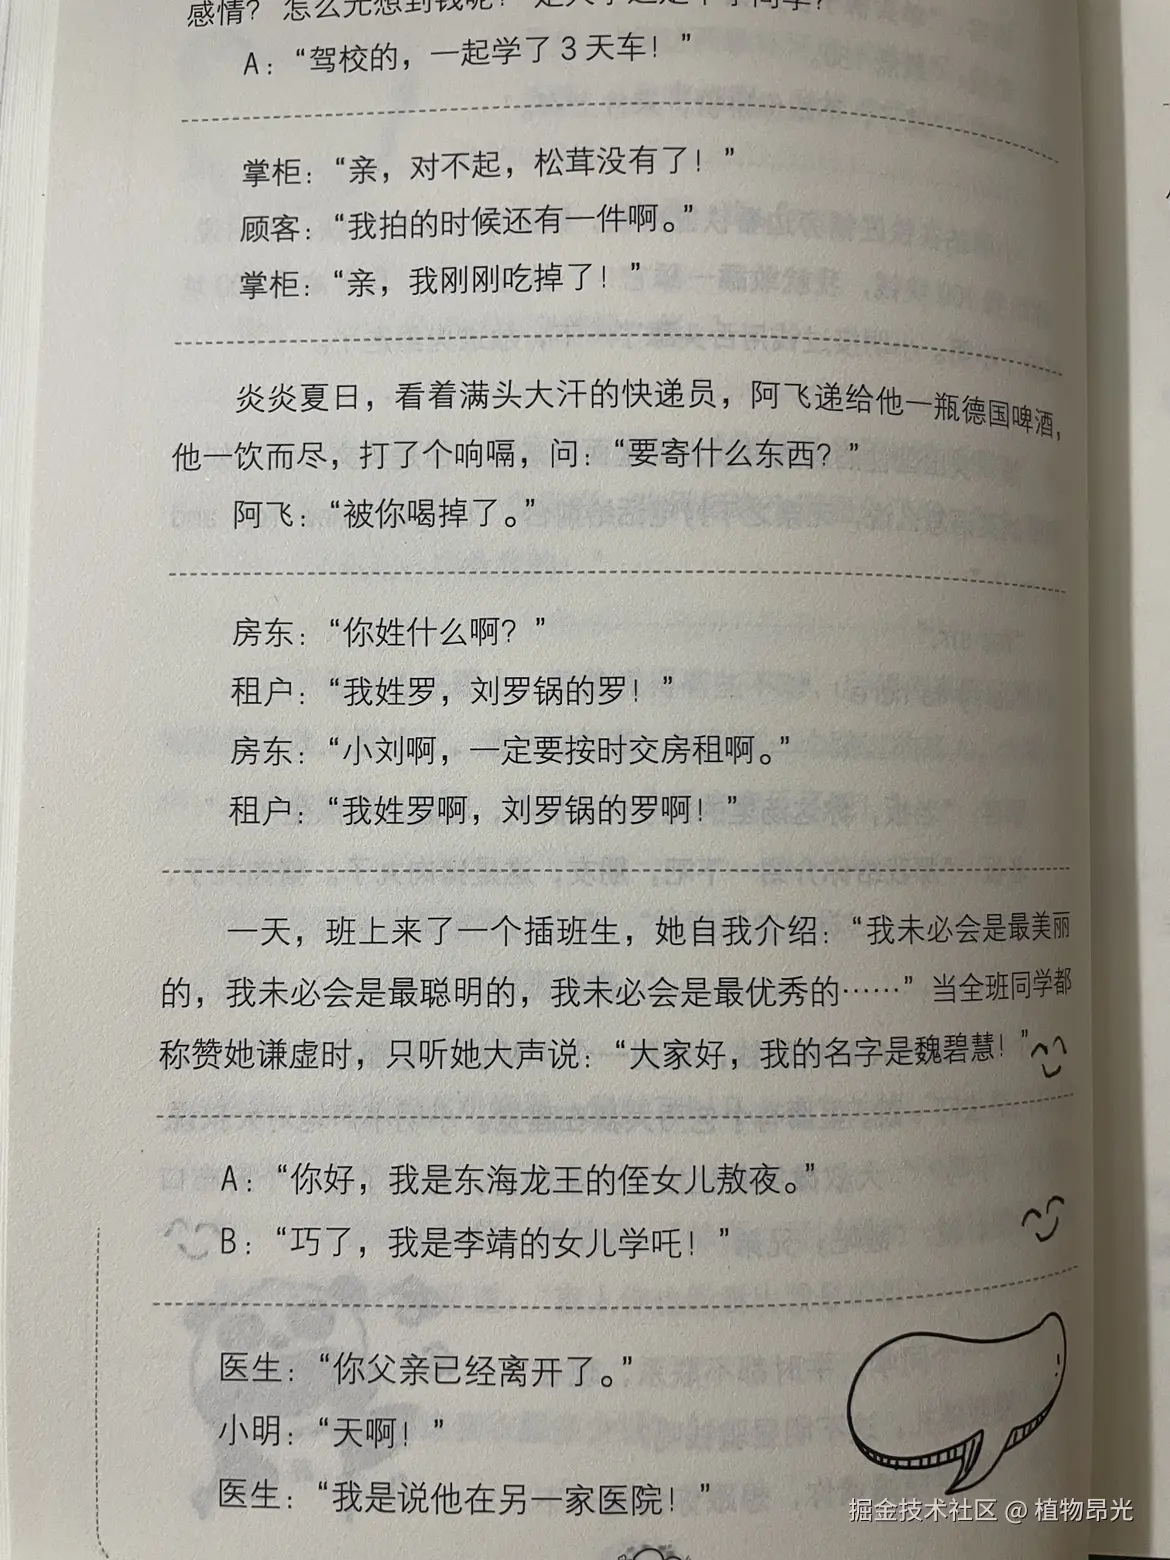 感情？怎么光想到钱呢？是大学还是中学同学？
A：“驾校的，一起学了 3 天车！”
掌柜：“亲，对不起，松茸没有了！”
顾客：“我拍的时候还有一件啊。”
掌柜：“亲，我刚刚吃掉了！”
炎炎夏日，看着满头大汗的快递员，阿飞递给他一瓶德国啤酒，
他一饮而尽，打了个响嗝，问：“要寄什么东西？”
阿飞：“被你喝掉了。”
房东：“你姓什么啊？”
租户：“我姓罗，刘罗锅的罗！”
房东：“小刘啊，一定要按时交房租啊。”
租户：“我姓罗啊，刘罗锅的罗啊！”
一天，班上来了一个插班生，她自我介绍：“我未必会是最美丽
的，我未必会是最聪明的，我未必会是最优秀的……”当全班同学都
称赞她谦虚时，只听她大声说：“大家好，我的名字是魏碧慧！”
A：“你好，我是东海龙王的侄女儿敖夜。”
B：“巧了，我是李靖的女儿学吒！”
医生：“你父亲已经离开了。”
小明：“天啊！”
医生：“我是说他在另一家医院！”
掘金技术社区 @ 植物昂光